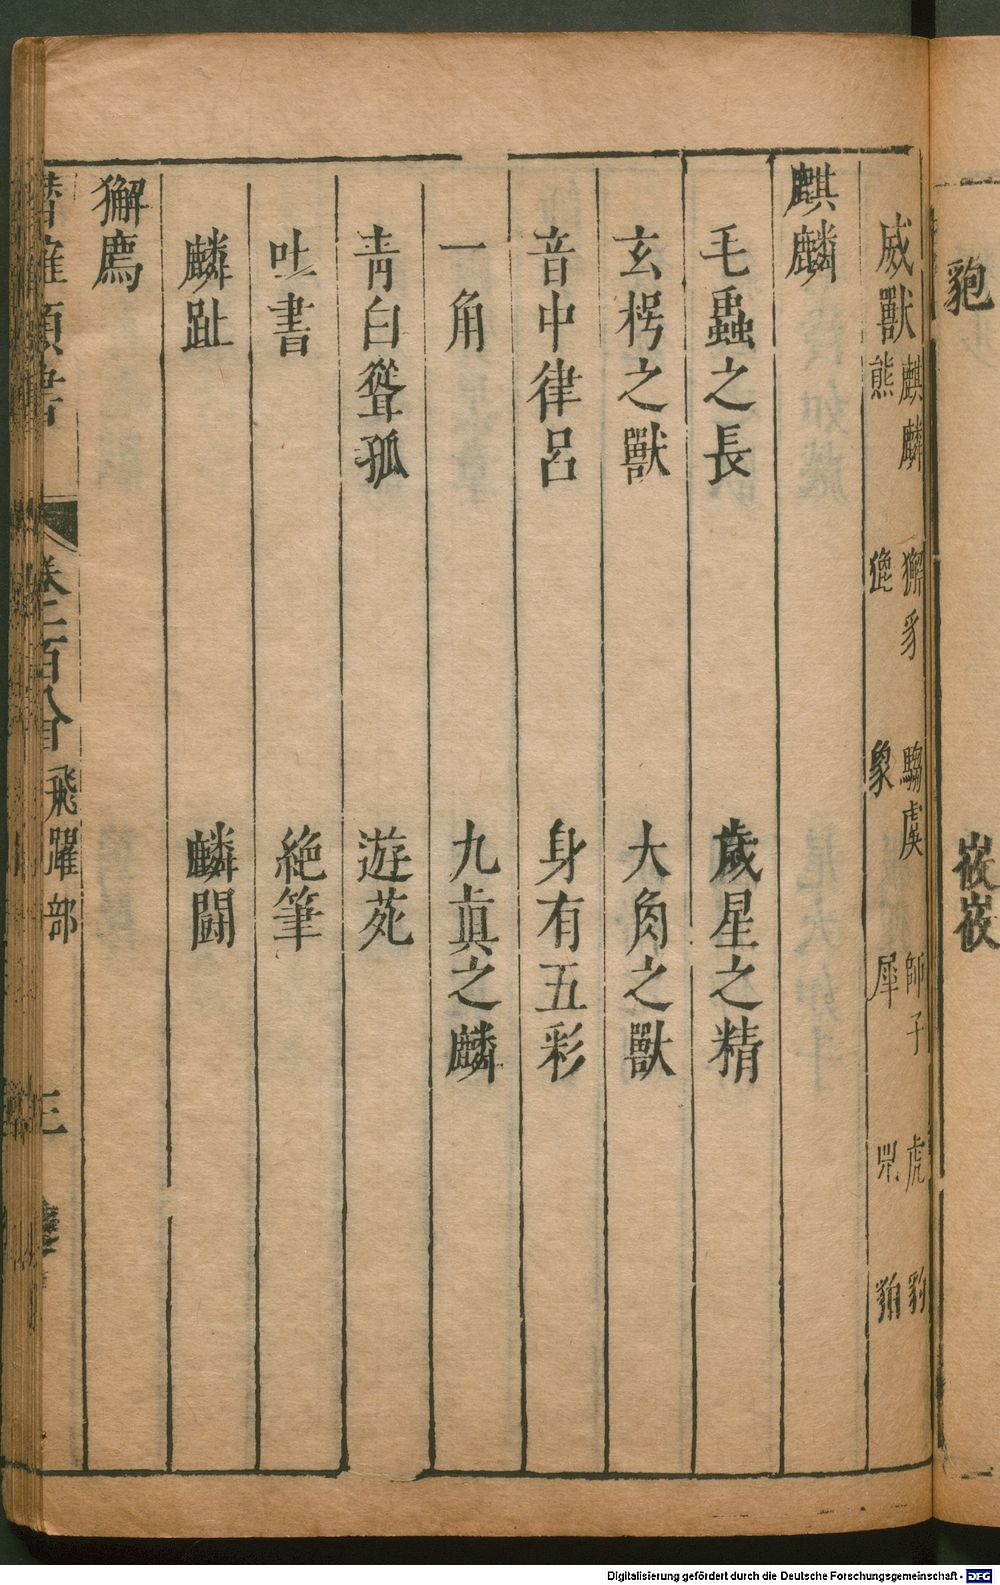 豹
崁崁
威獸 麒麟 獬豸 騶虞 師子 虎 豹
熊 象 犀 兕
麒麟
毛蟲之長 歲星之精
玄枵之獸 大角之獸
音中律呂 身有五彩
一角 九眞之麟
青白聳孤 遊苑
吐書 絶筆
麟趾 麟鬪
獬廌
潛確類書 卷二百八 飛躍部 三
Digitalisierung gefördert durch die Deutsche Forschungsgemeinschaft - DFG